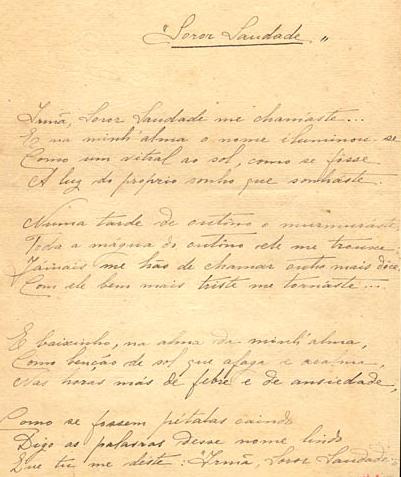 "Soror Saudade"
Irmã, Soror Saudade me chamaste...
E na minh'alma o nome iluminou-se
Como um vitral ao sol, como se fosse
A luz do proprio sonho que sonhaste.
Numa tarde de outino o murmuraste,
Toda a mágua do outino ele me trouxe
Jámais me hão de chamar outro mais dôce
Com ele bem mais triste me tornaste...
E baixinho, na alma da minh'alma,
Como benção de sol que afaga e acalma,
Nas horas más de febre e de ansiedade,
Como se fossem pétalas caindo
Digo as palavras desse nome lindo
Que tu me déste: "Irmã, Soror Saudade...